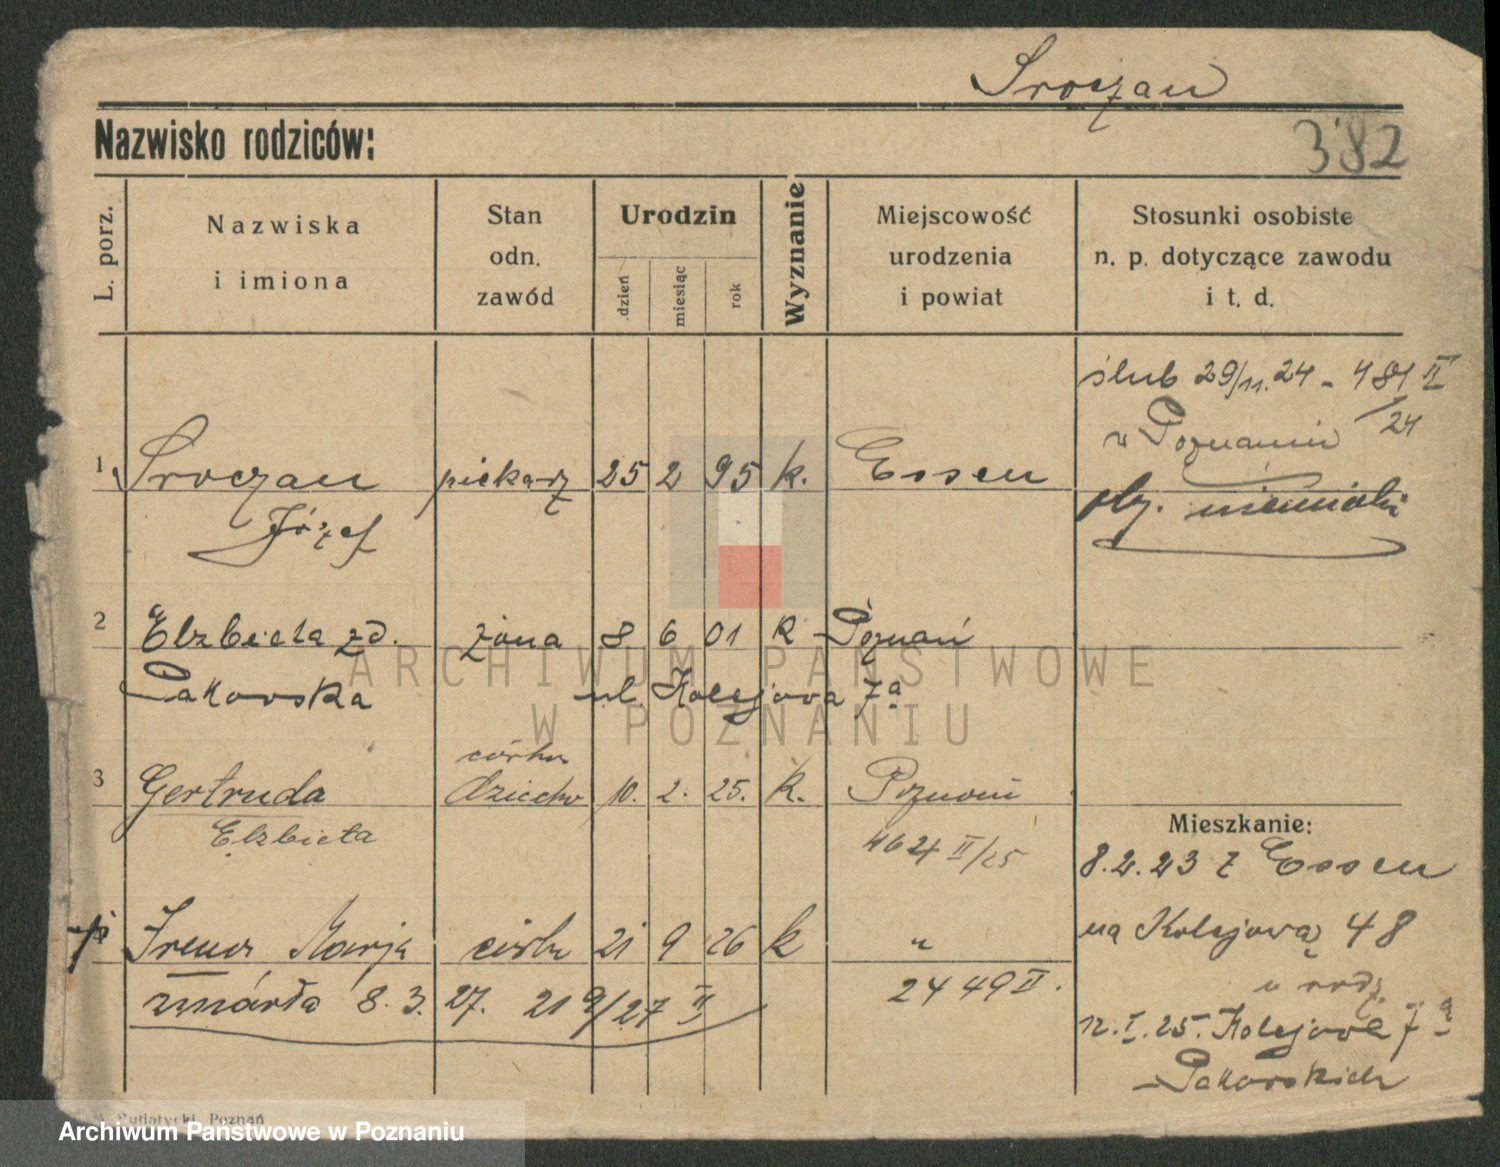 Sroczan
382
Nazwisko rodziców:
L. porz.
Nazwiska
i imiona
Stan
odn.
zawód
Urodzin
dzień
miesiąc
rok
Wyznanie
Miejscowość
urodzenia
i powiat
Stosunki osobiste
n. p. dotyczące zawodu
i t. d.
ślub 29/11.24 - 481 II
/24
w Poznaniu
1 Sroczan piekarz 25 2 95 k. Essen
Józef
oby. niemiecki
2 Elzbieta zd. żona 8 6 01 k Poznań
Pakowska ul. Kolejowa 7a
córka
3 Gertruda dziecko 10. 2. 25. k. Poznań
Elzbieta
464 II/25
Mieszkanie:
8.2.23 z Essen
Irena Marja córka 21 9 26 k "
na Kolejową 48
2449 II.
zmárła 8. 3. 27. 219/27 II
u rodz
12.I.25. Kolejowa 7a
Pakowskich
Putiatycki, Poznań
ARCHIWUM PAŃSTWOWE
W POZNANIU
Archiwum Państwowe w Poznaniu